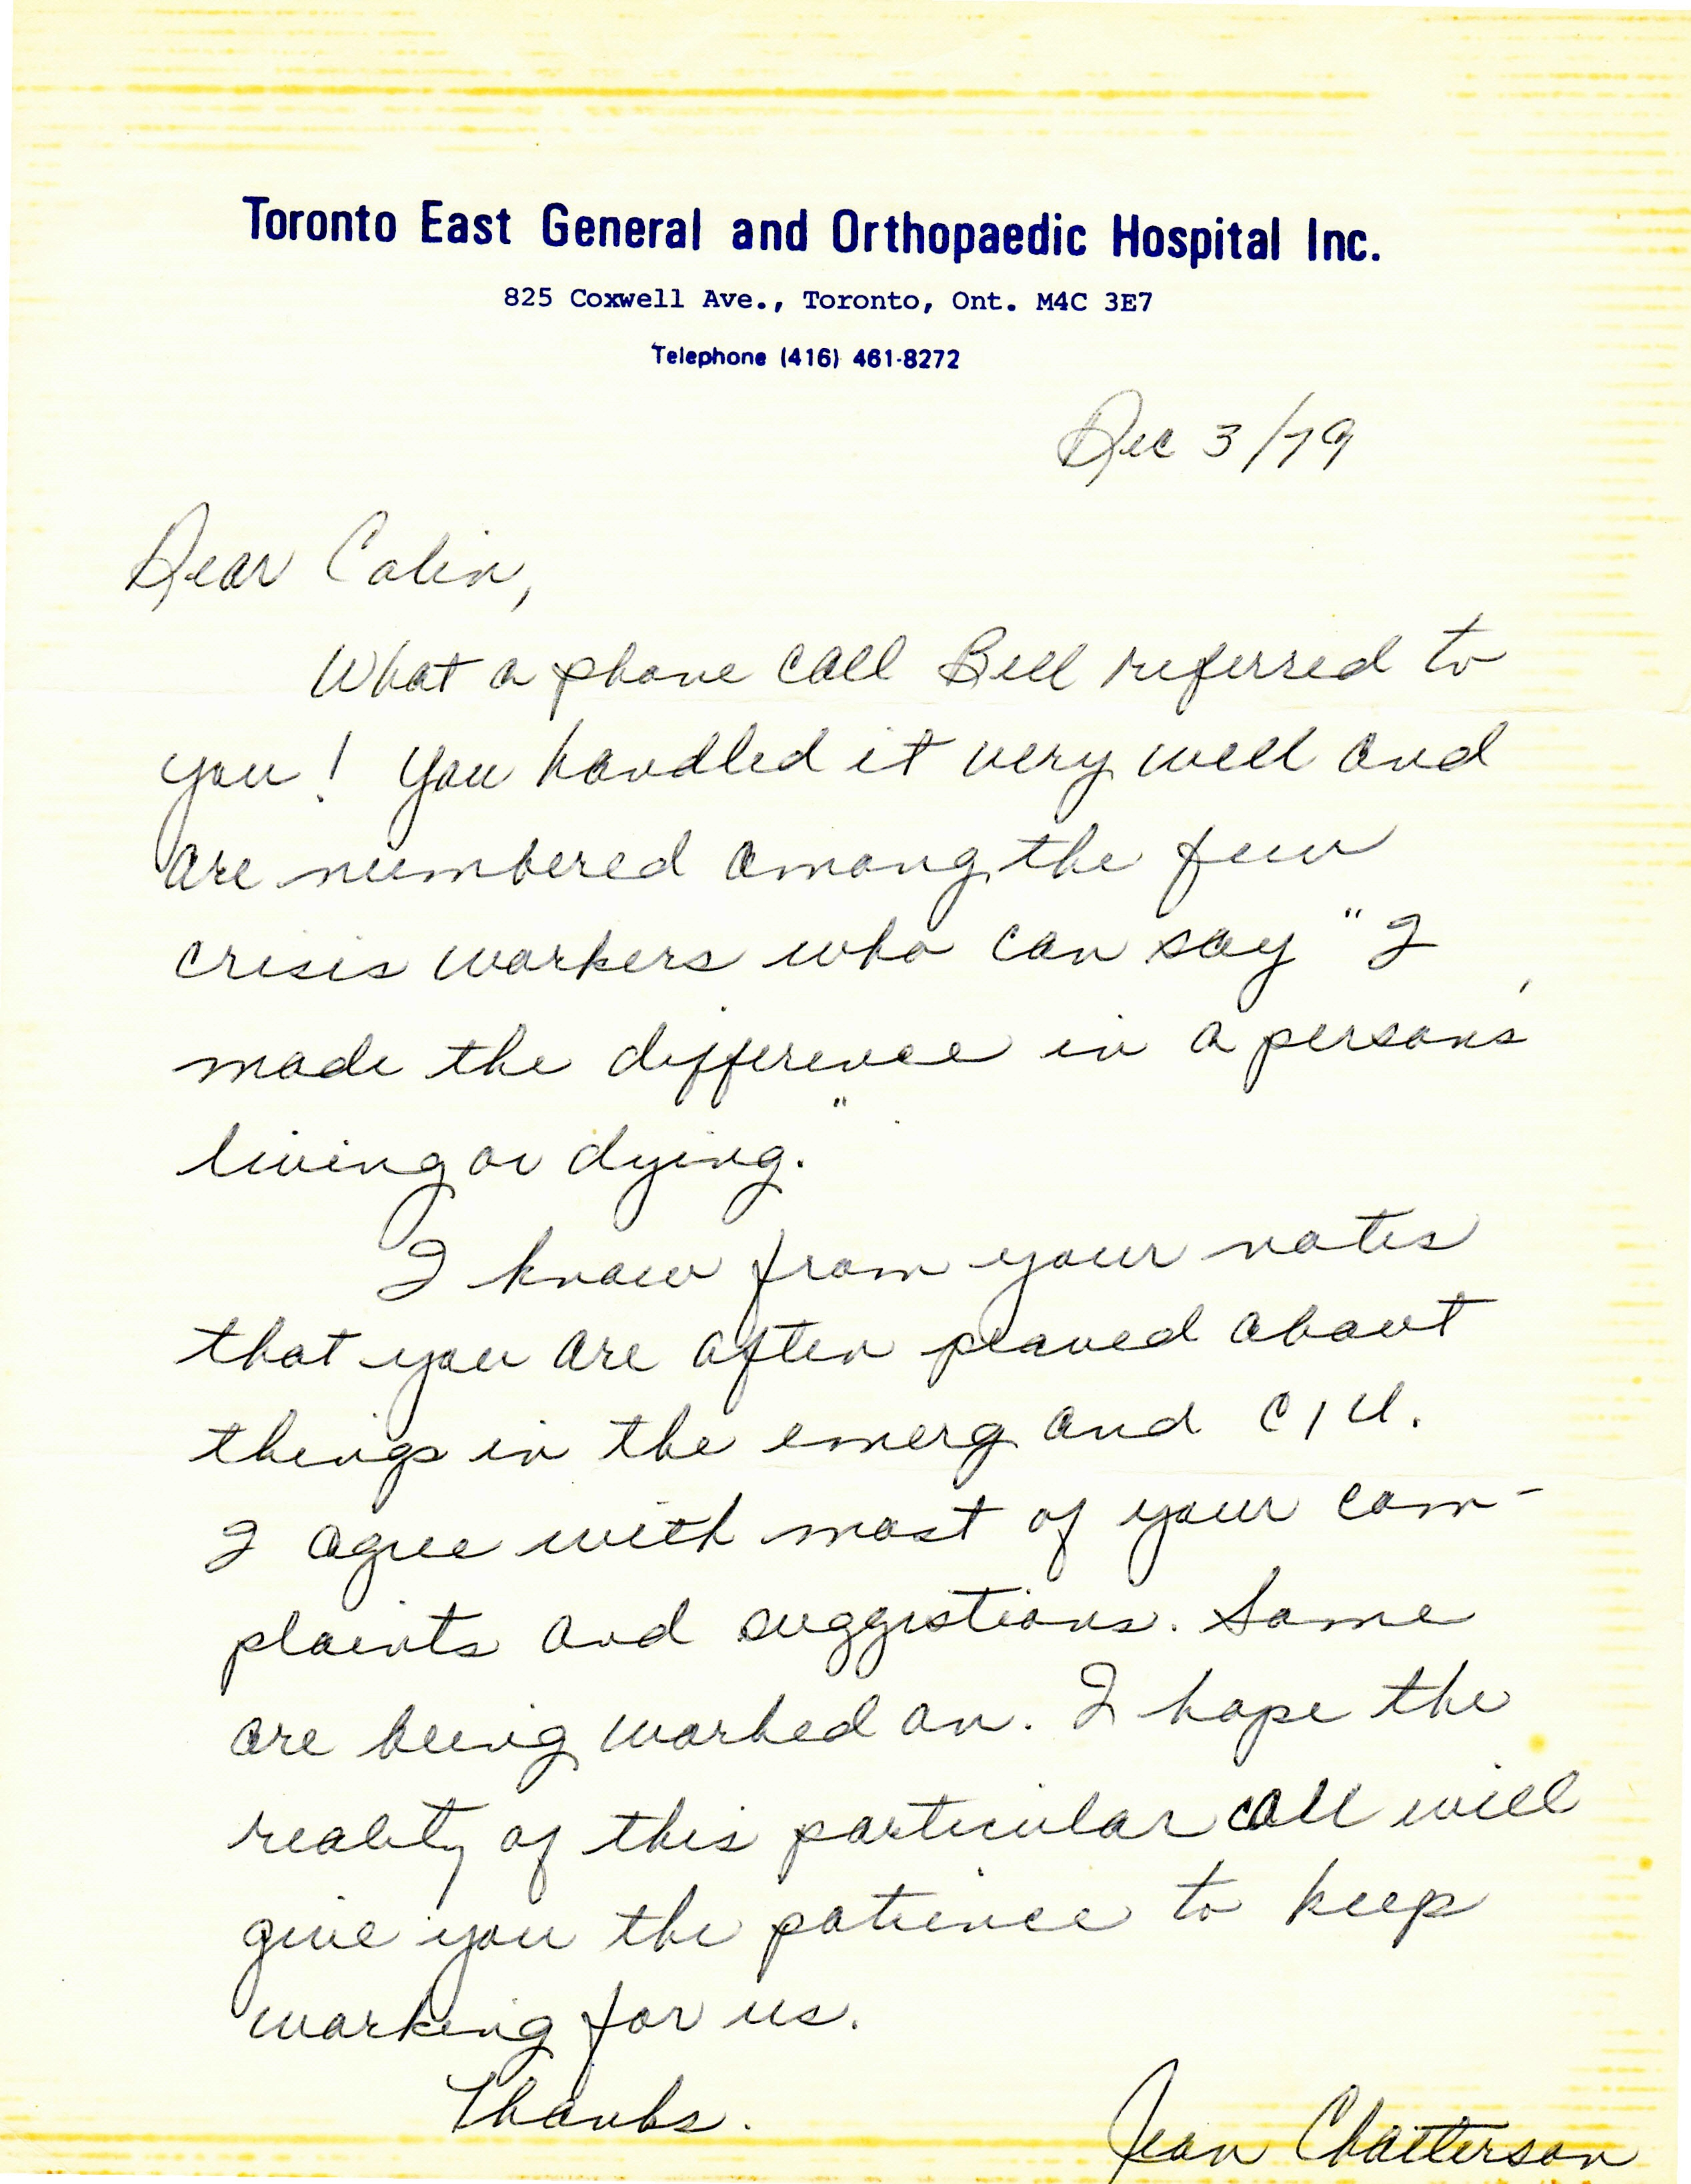 Toronto East General and Orthopaedic Hospital Inc.
825 Coxwell Ave., Toronto, Ont. M4C 3E7
Telephone (416) 461-8272
Dec 3/79
Dear Colin,
What a phone call Bell referred to
you! You handled it very well and
are numbered among the few
crisis workers who can say "I
made the difference in a persons'
living or dying."
I know from your notes
that you are often peaved about
things in the emerg and CIU.
I agree with most of your com-
plaints and suggestions. Some
are being worked on. I hope the
reality of this particular call will
give you the patience to keep
working for us.
Thanks.
Jean Chatterson